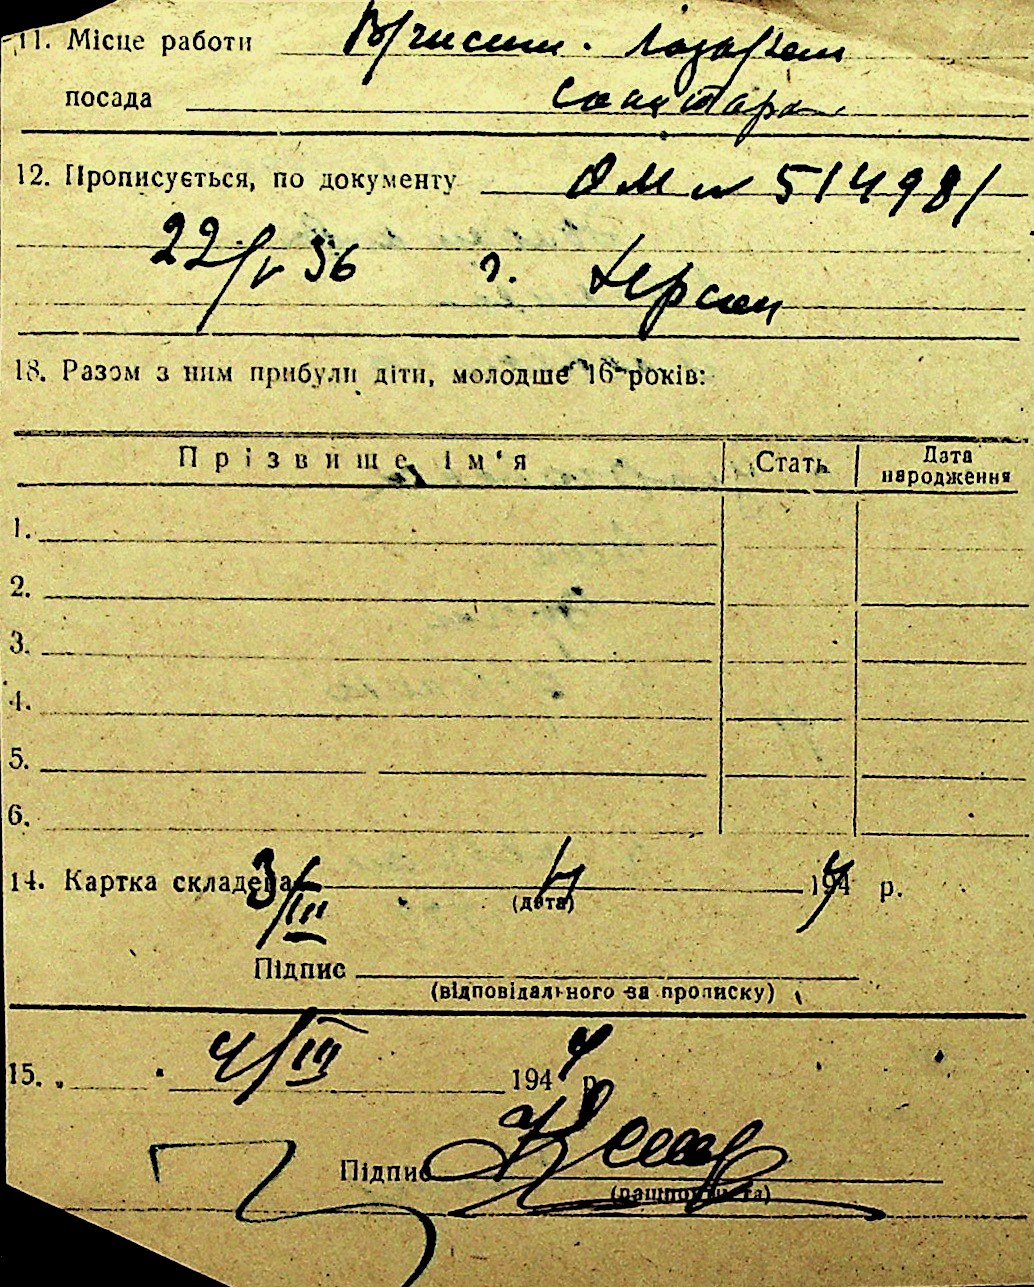 11. Місце работи лазарет
посада санитарка
12. Прописується, по документу ОМ № 514981
22/V 36 г. Херсон
13. Разом з ним прибули діти, молодше 16 років:
Прізвище, ім'я Стать Дата народження
1.
2.
3.
4.
5.
6.
14. Картка складена 3/III 4 1944 р.
(дата)
Підпис
(відповідального за прописку)
15. 4/III 1944 р.
Підпис
(пашпортиста)